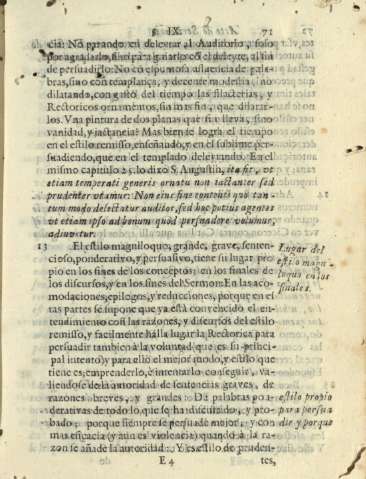 §. IX. 71
cia: No parando en delectar al Auditorio, solo
por agradarlo, sino para ganarlo con el deleyte, al fin
de persuadirlo: No con espumosa afluencia de pala-
bras, sino con templança, y decente modestia; no
dilatando, con gasto del tiempo las filacterias, y
Rectoricos ornamentos, sin mas fin, que dilatar-
los. Vna pintura de dos planas que sirve, sino
vanidad, y jactancia? Mas bien se logra el tiempo
en el estilo remisso, enseñando, y en el sublime per-
suadiendo, que en el templado deleytando. En el
mismo capitulo 25. lo dixo S. Augustin, ita fit, vt
etiam temperati generis ornatu non iactanter sed
prudenter vtamur: Non eius fine contenti quo tan-
tum modo delectatur auditor, sed hoc potius agentes
vt etiam ipso ad bonum quod persuadere volumus,
adiuvetur.
13 El estilo magniloquo, grande, grave, senten-
cioso, ponderativo, y persuasivo, tiene su lugar pro
pio en los fines de los conceptos, en los finales de
los discursos, y en los fines del Sermon: En las aco-
modaciones, epilogos, y reducciones, porque en es
tas partes se supone que ya està convencido el en-
tendimiento con las razones, y discursos del estilo
remisso, y facilmente halla lugar la Rectorica para
persuadir tambien à la voluntad que es su princi-
pal intento; y para ello el mejor modo, y estilo que
tiene es, emprenderlo, è intentarlo conseguir, va-
liendose de la autoridad de sentencias graves, de
razones breves, y grandes Da palabras po
derativas de todo lo que se ha discutado, y pro-
bado, porque siempre persuade mejor, y con
mas eficacia (y aun es violencia) quando à la ra-
zon se añade la autoridad. Y es estilo de pruden-
E 4 tes,
Lugar del
estilo magni-
loquo en los
finales.
estilo propio
para persua
dir y porque